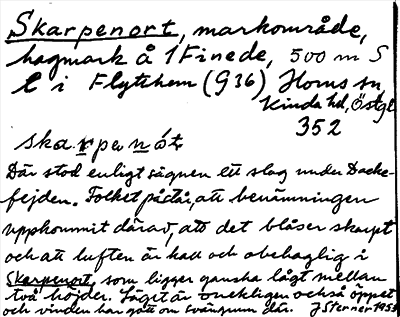 Skarpenort, markområde,
hagmark å 1 Finede, 500 m S
l i Flytthem (G36) Horns sn,
Kinda hd, Östgl
352
ska rpe nót
Där stod enligt sägnen ett slag under Dacke-
fejden. Folket påstår, att benämningen
uppkommit därav, att det blåser skarpt
och att luften är kall och obehaglig i
Skarpenort, som ligger ganska lågt mellan
två höjder. Läget är onekligen också öppet
och vinden har gott om svängrum där. J Sterner 1953